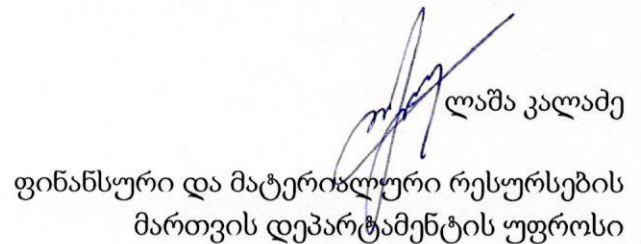 ლაშა კალაძე
ფინანსური და მატერიალური რესურსების
მართვის დეპარტამენტის უფროსი